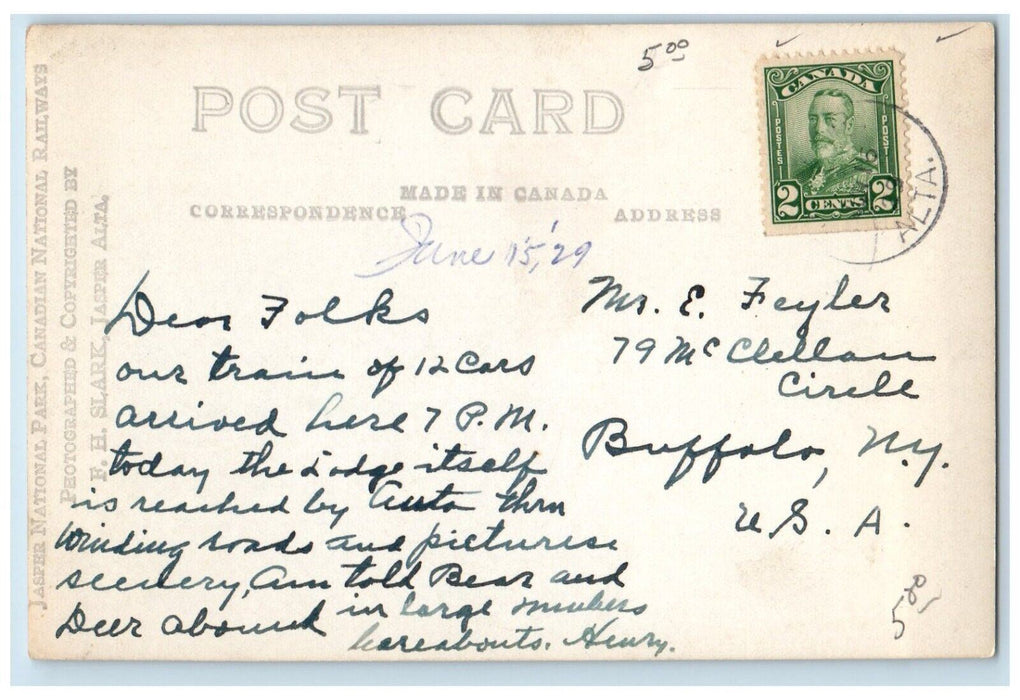 5.00
POST CARD
CANADA
POSTES
POST
2 CENTS 2
ALTA.
MADE IN CANADA
CORRESPONDENCE
ADDRESS
June 15,'29
JASPER NATIONAL PARK, CANADIAN NATIONAL RAILWAYS
PHOTOGRAPHED & COPYRIGHTED BY
F. H. SLARK, JASPER ALTA.
Dear Folks
our train of 12 Cars
arrived here 7 P.M.
today the Lodge itself
is reached by Auto thru
winding roads and pictures
scenery, Am told Bear and
Deer abound in large numbers
hereabouts. Henry.
Mr. E. Feyler
79 McClellan
Circle
Buffalo, N.Y.
U.S.A.